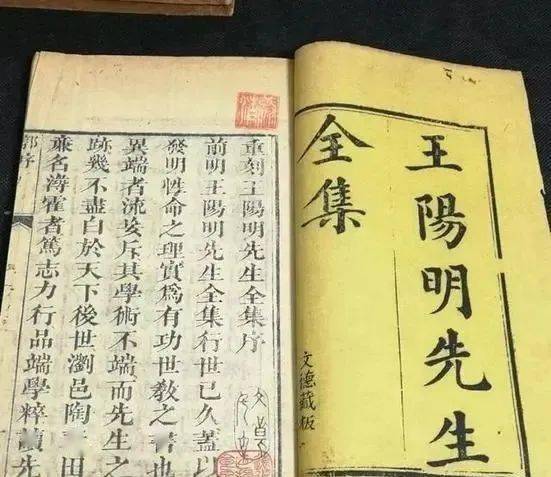 王陽明先生
全集
文德藏板
重刻王陽明先生全集序
前明王陽明先生全集行世已久蓋以
發明性命之理實為有功世教之書也
異端者流妄斥其學術不端而先生之
跡幾不盡白於天下後世瀏邑陶
田
兼名濤霍者篤志力行品端學粹讀先
郭序